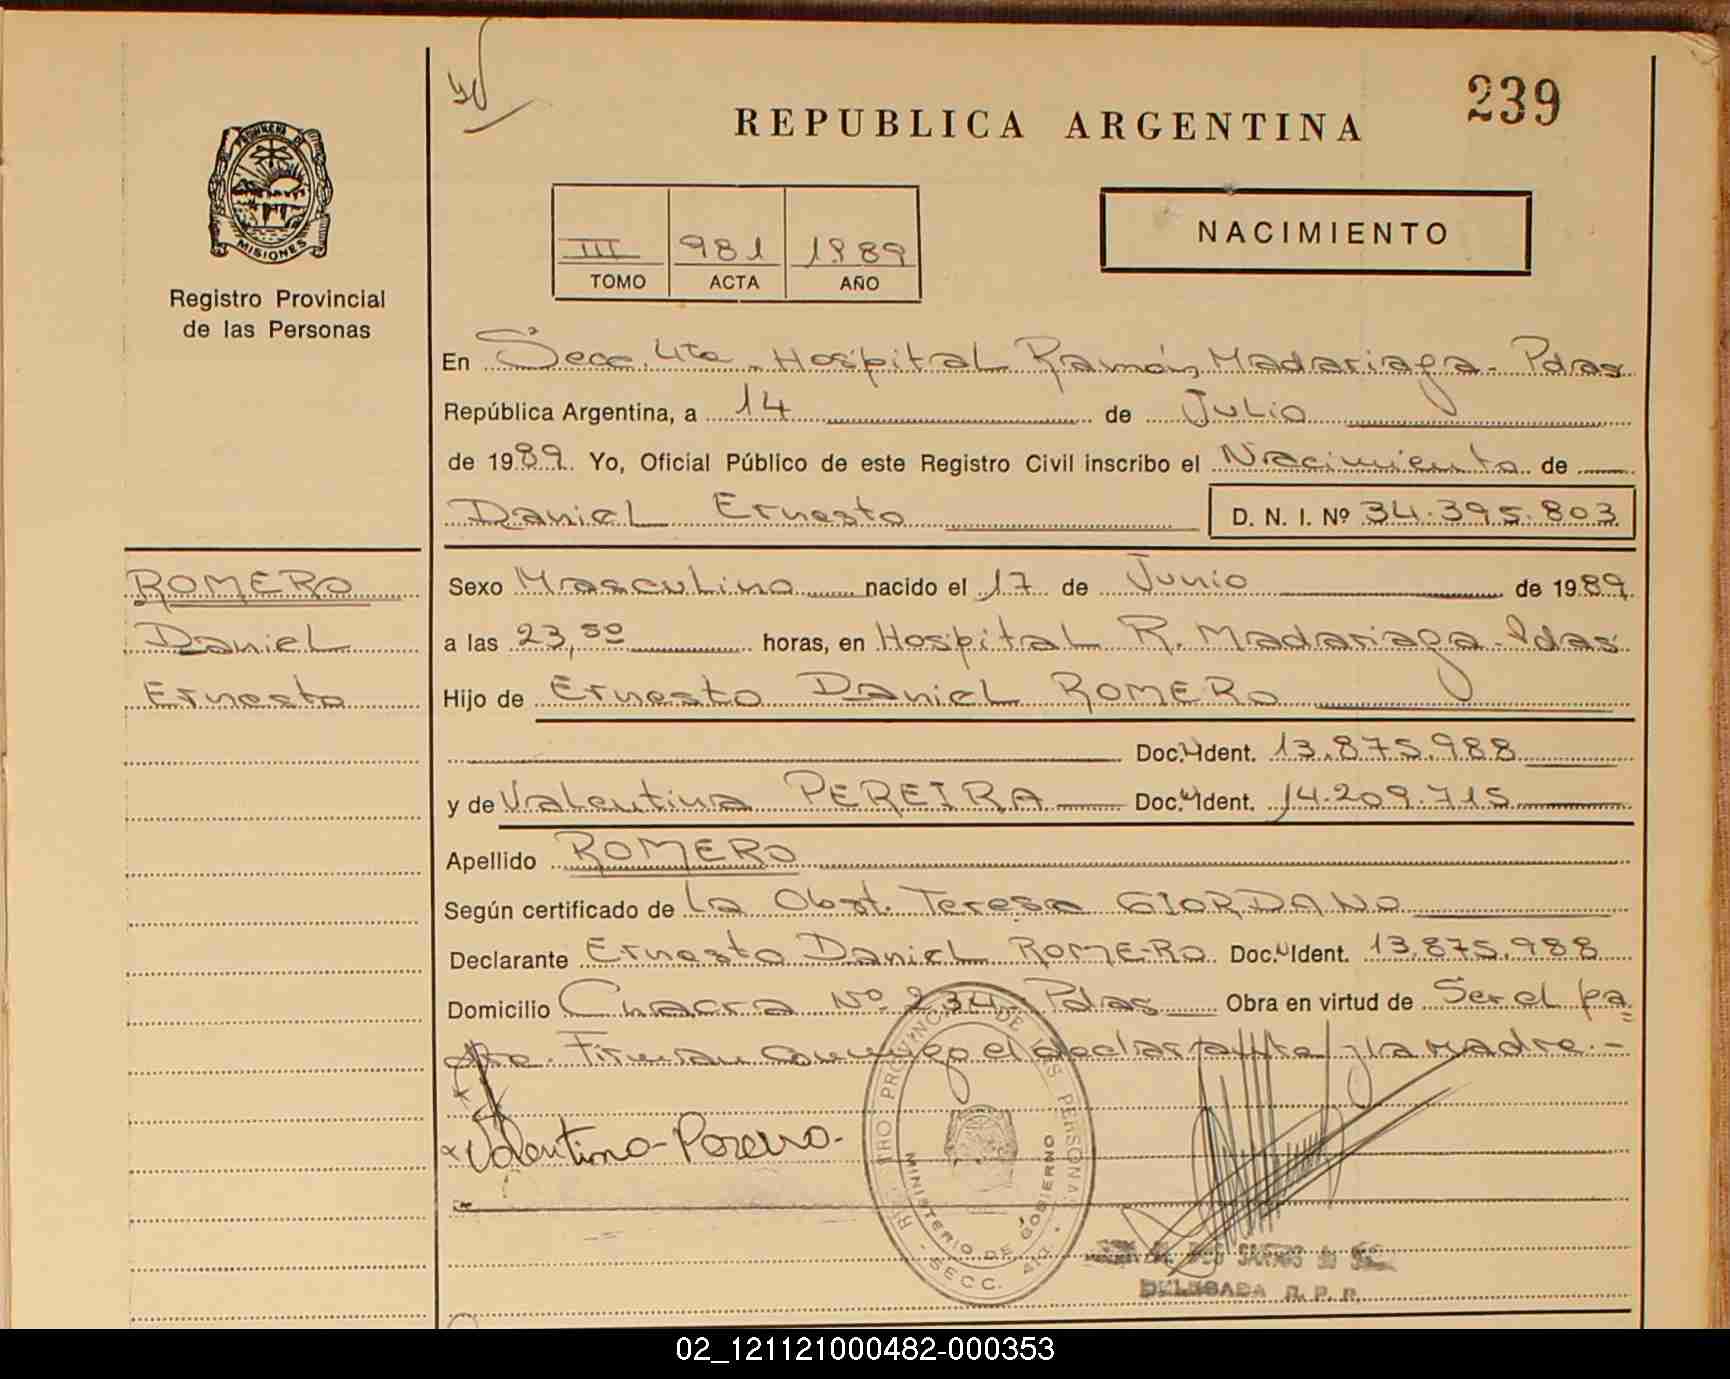 239
REPUBLICA ARGENTINA
PROVINCIA DE
MISIONES
Registro Provincial
de las Personas
III 981 1989
TOMO ACTA AÑO
NACIMIENTO
En Secc. 4ta. Hospital Ramón Madariaga - Pdas
República Argentina, a 14 de Julio
de 1989. Yo, Oficial Público de este Registro Civil inscribo el Nacimiento de
Daniel Ernesto D. N. I. Nº 34.395.803
ROMERO
Daniel
Ernesto
Sexo Masculino nacido el 17 de Junio de 1989
a las 23,50 horas, en Hospital R. Madariaga - Pdas
Hijo de Ernesto Daniel ROMERO
Doc. Ident. 13.875.988
y de Valentina PEREIRA Doc. Ident. 14.209.715
Apellido ROMERO
Según certificado de La Obst. Teresa GIORDANO
Declarante Ernesto Daniel ROMERO Doc. Ident. 13.875.988
Domicilio Chacra Nº 234 - Pdas Obra en virtud de Ser el pa=
dre. Firman conmigo el declarante y la madre.-
Valentina Pereira.
REGISTRO PROVINCIAL DE LAS PERSONAS
MINISTERIO DE GOBIERNO
SECC. 4ta.
DOS SANTOS de
DELEGADA R. P. P.
02_121121000482-000353